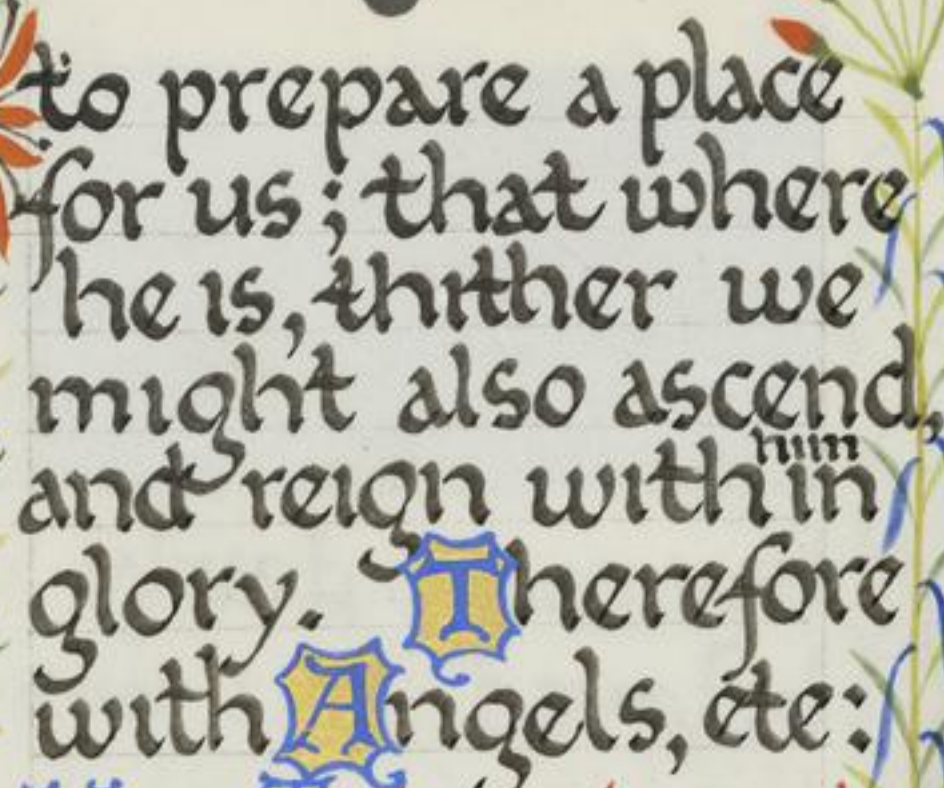 to prepare a place
for us; that where
he is, thither we
might also ascend,
and reign with him in
glory. Therefore
with Angels, etc: